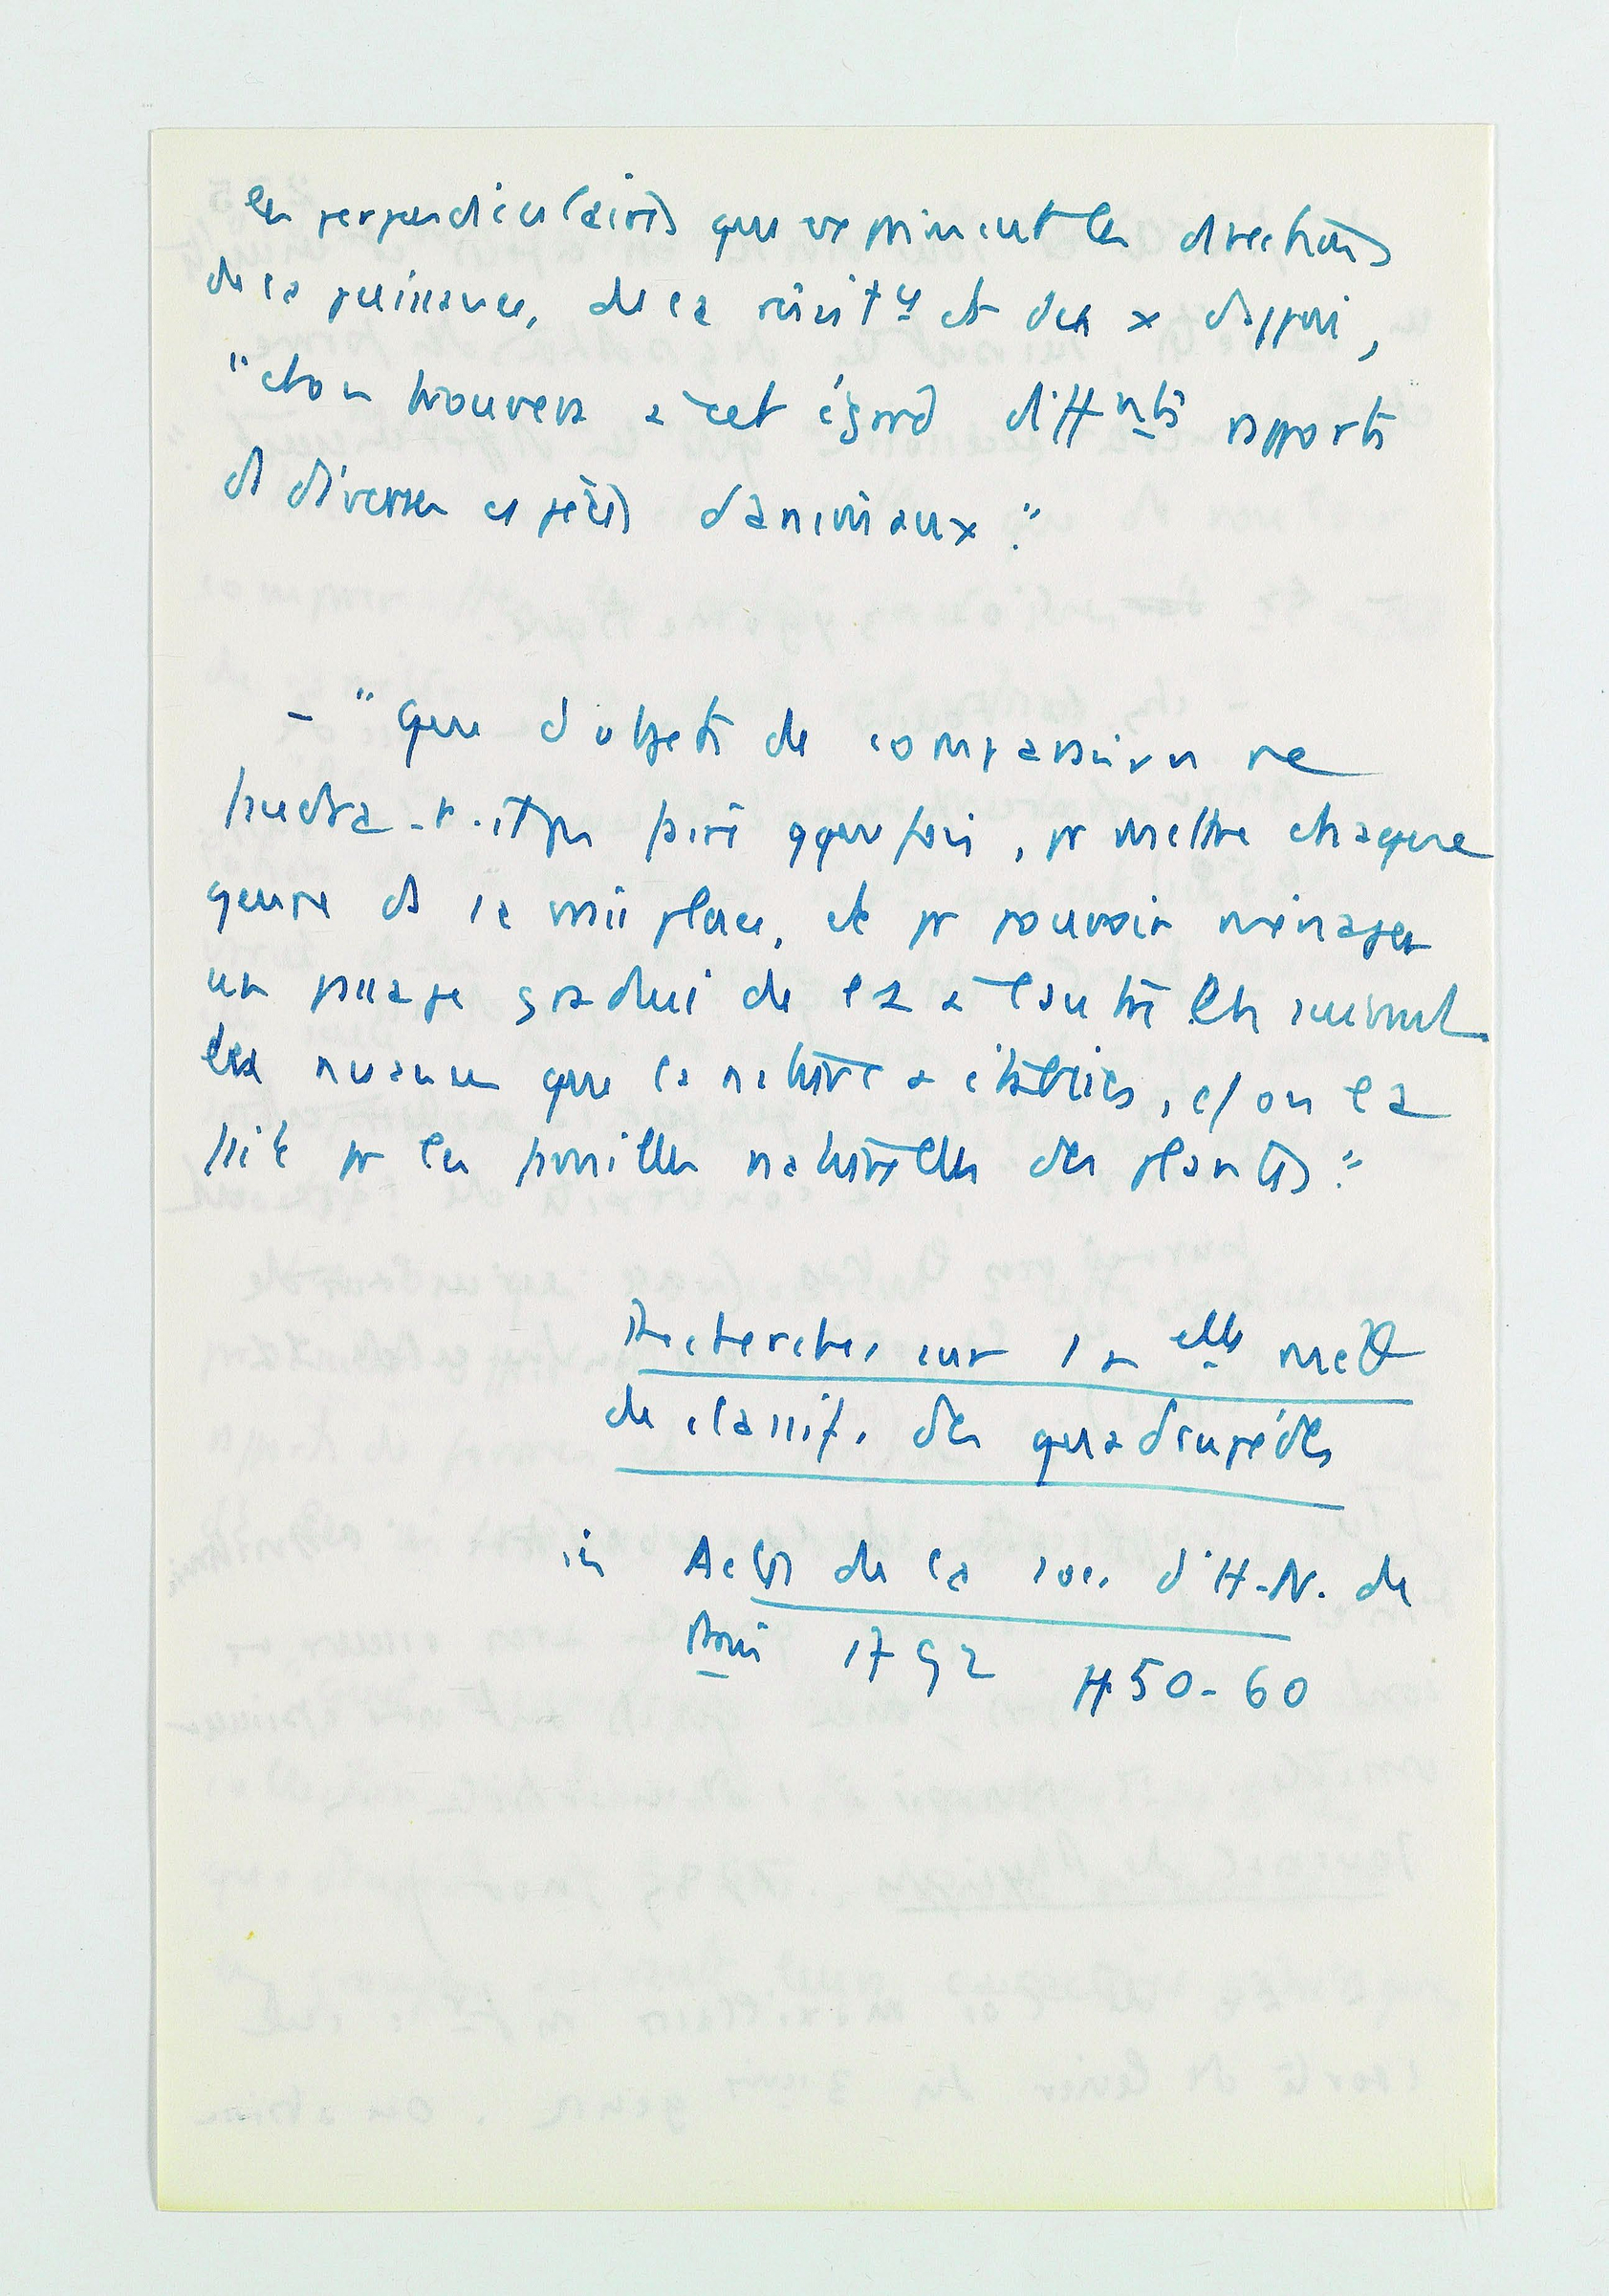 les perpendiculaires que expriment les directions
de la puissance, de la résist ce et des x d'appui,
"et on trouvera à cet égard diff nts rapports
ds diverses espèces d'animaux."
- "Que d'objets de comparaison ne
faudra-t-il pas faire qque fois, pr mettre chaque
genre ds sa vraie place, et pr pouvoir ménager
un passage gradué de l'1 à l'autre en suivant
les nuances que la nature a établies, c/ on l'a
fait pr les familles naturelles des plantes."
Recherches sur 1 n elle méth
de classif. des quadrupèdes
in Actes de la soc. d'H-N. de
Paris 1792 pp 50-60